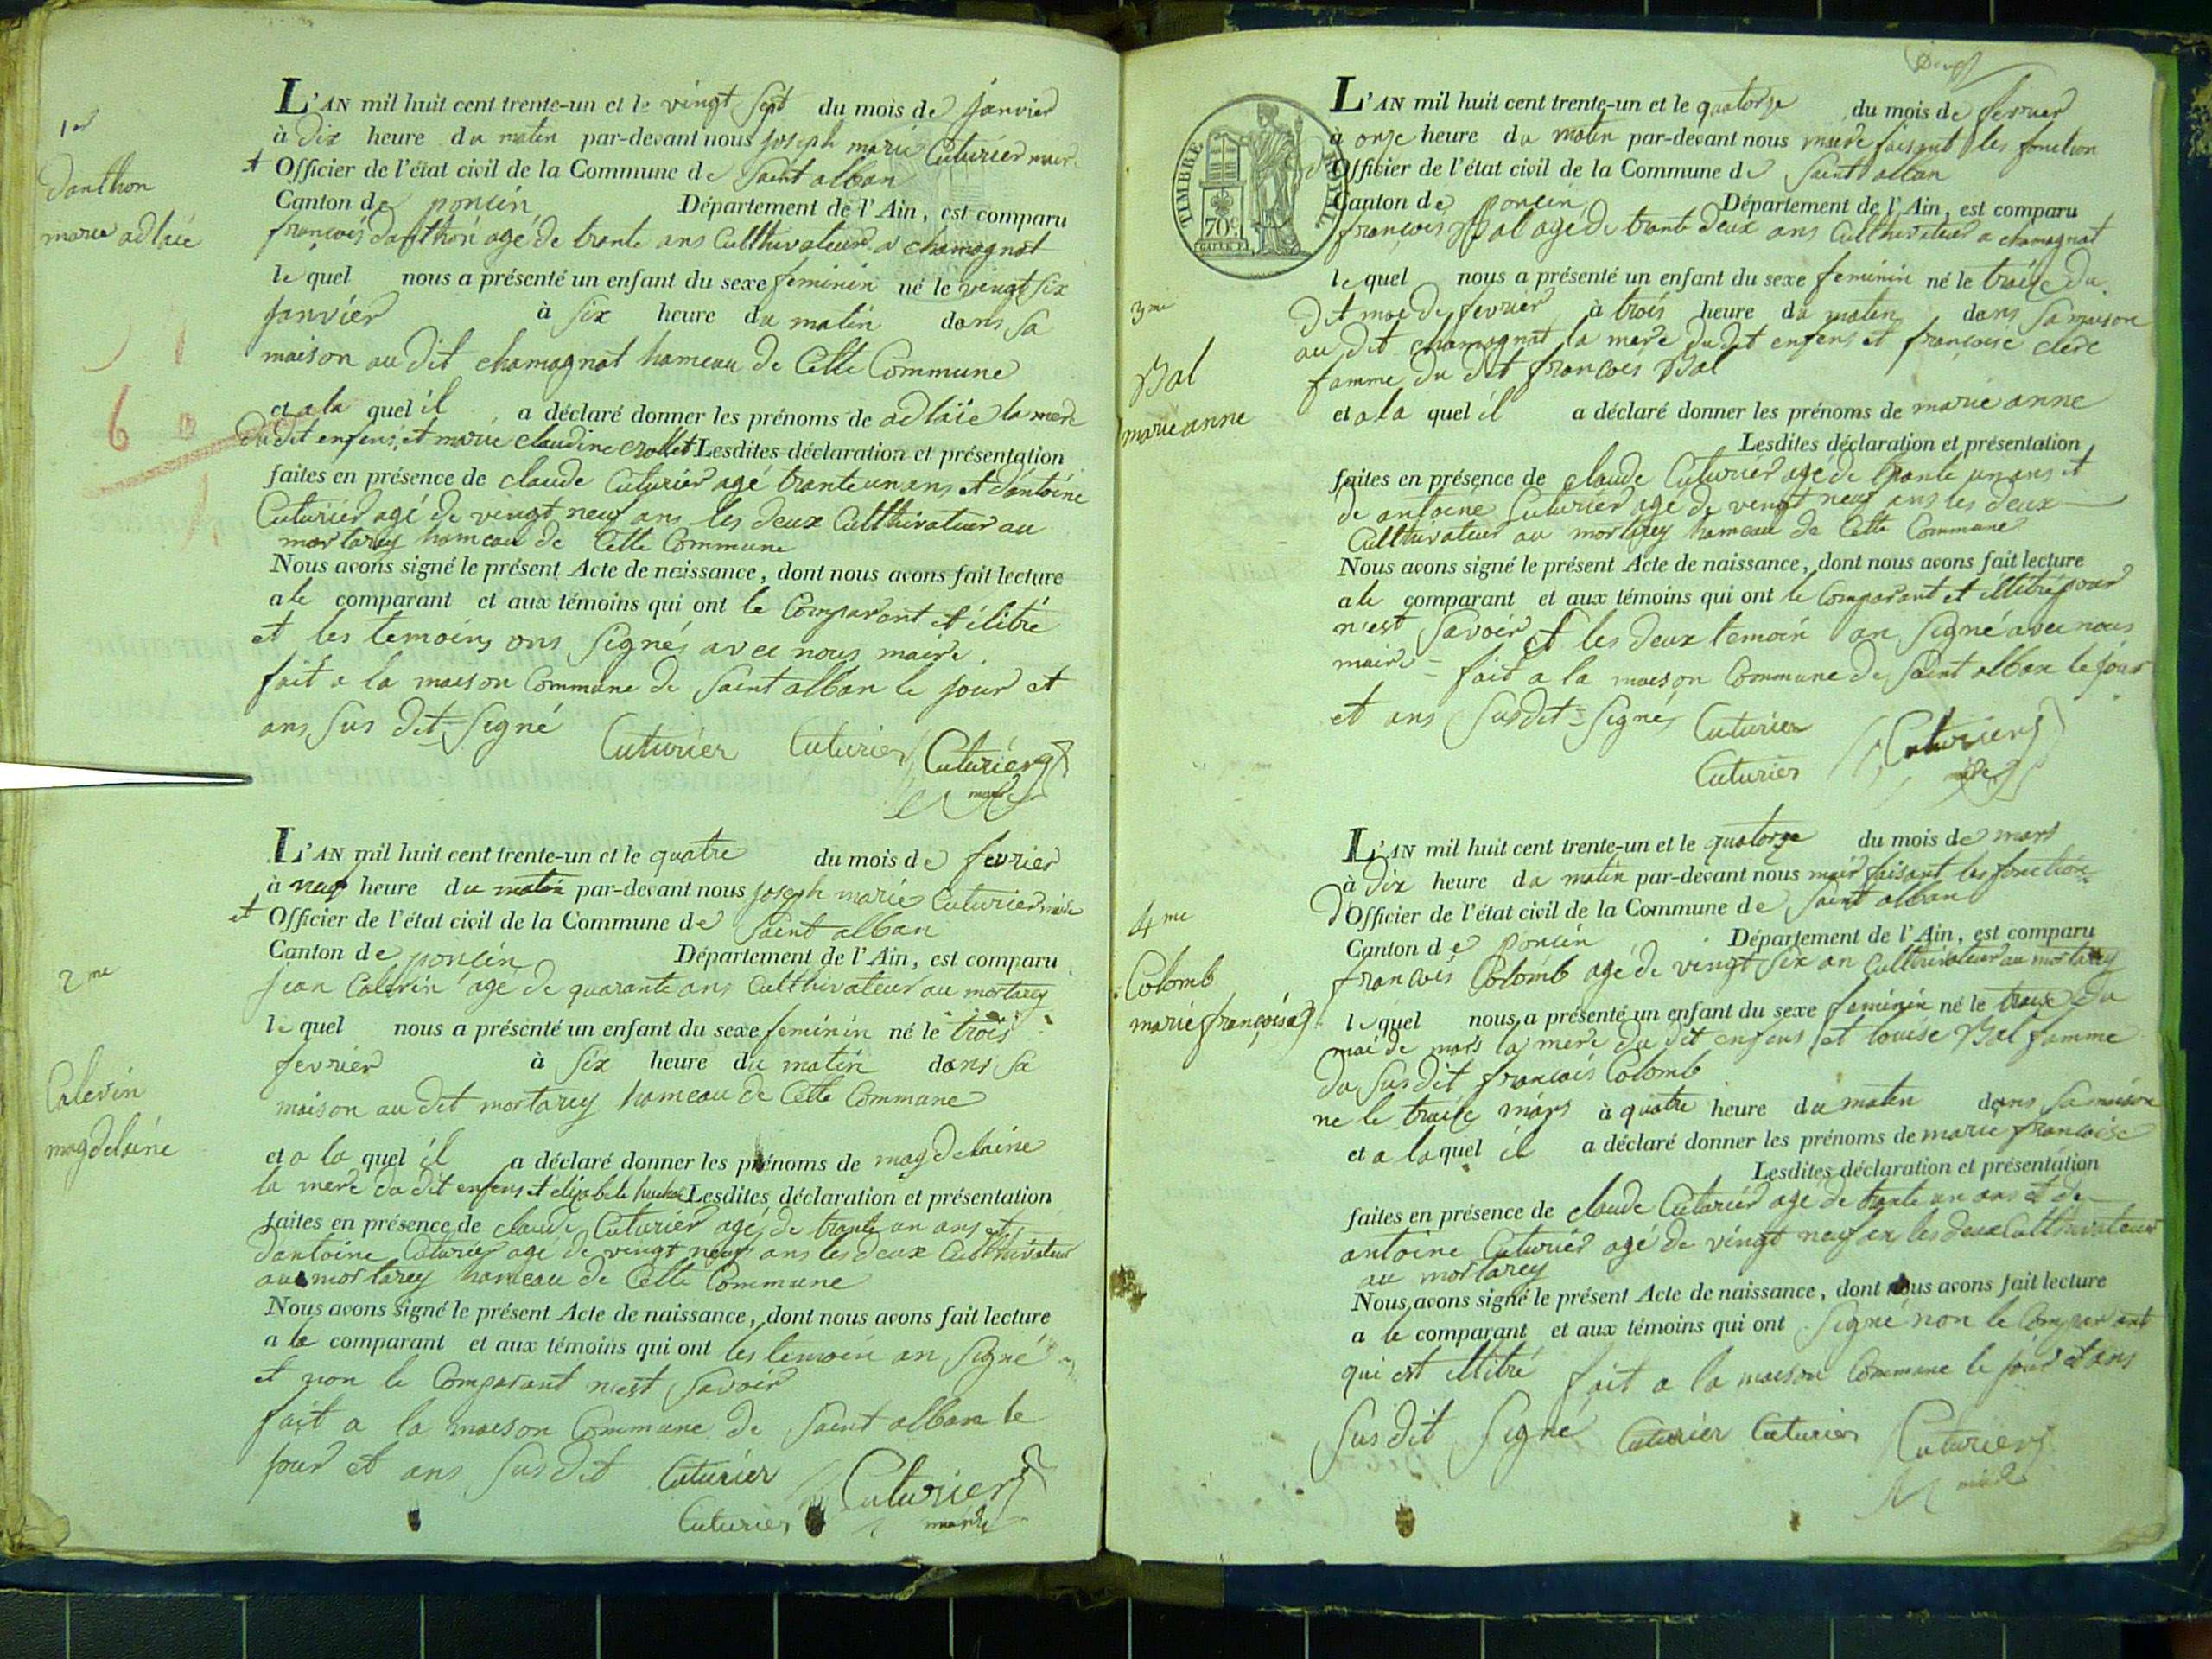 1er
Danthon
marie adlaïe
L'AN mil huit cent trente-un et le vingt sept du mois de janvier
à dix heure du matin par-devant nous joseph marie Cuturier maire
et Officier de l'état civil de la Commune de Saint alban
Canton de poncin Département de l'Ain, est comparu
françois danthon agé de trante ans Cultthivateur a chamagnat
le quel nous a présenté un enfant du sexe feminin né le vingt six
janvier à six heure du matin dans sa
maison au dit chamagnat hameau de Cette Commune
et a la quel il a déclaré donner les prénoms de adlaïe la mere
du dit enfens et marie claudine crollet Lesdites déclaration et présentation
faites en présence de claude Cuturier agé trante un ans et d'antoine
Cuturier agé de vingt neuf ans les deux Cultthivateur au
mortarey hameau de Cette Commune
Nous avons signé le présent Acte de naissance, dont nous avons fait lecture
a le comparant et aux témoins qui ont le Comparant et élitré
et les temoins ons Signés avec nous maire.
fait a la maison Commune de Saint alban le jour et
ans sus dit = Signé Cuturier Cuturier Cuturier
maire
2me
Calevin
magdelaine
L'AN mil huit cent trente-un et le quatre du mois de fevrier
à neuf heure du matin par-devant nous joseph marie Cuturier maire
et Officier de l'état civil de la Commune de Saint alban
Canton de poncin Département de l'Ain, est comparu
jean Calevin agé de quarante ans Cultthivateur au mortarey
le quel nous a présenté un enfant du sexe feminin né le trois
fevrier à six heure du matin dans sa
maison au dit mortarey hameau de Cette Commune
et a la quel il a déclaré donner les prénoms de magdelaine
la mere du dit enfens et elizabete Lesdites déclaration et présentation
faites en présence de claude Cuturier agé de trante un ans et
dantoine Cuturier age de vingt neuf ans les deux Cultthivateur
au mortarey hameau de Cette Commune
Nous avons signé le présent Acte de naissance, dont nous avons fait lecture
a le comparant et aux témoins qui ont les temoin on Signé
et non le Comparant n'est Savoir
fait a la maison Commune de Saint alban le
jour et ans susdit Cuturier Cuturier
Cuturier maire
TIMBRE ROYAL
70c
3me
Bal
marie anne
L'AN mil huit cent trente-un et le quatorze du mois de fevrier
à onze heure du matin par-devant nous maire faisent les fonction
d'Officier de l'état civil de la Commune de Saint alban
Canton de poncin Département de l'Ain, est comparu
françois Bal agé de trante deux ans Cultthivateur a chamagnat
le quel nous a présenté un enfant du sexe feminin né le traize du
dit moi de fevrier à trois heure du matin dans sa maison
au dit chamagnat la mere du dit enfens et françoise clere
famme du dit françois Bal
et a la quel il a déclaré donner les prénoms de marie anne
Lesdites déclaration et présentation
faites en présence de claude Cuturier agé de trante un ans et
de antoine Cuturier agé de vingt neuf ans les deux
Cultthivateur au mortarey hameau de Cette Commune
Nous avons signé le présent Acte de naissance, dont nous avons fait lecture
a le comparant et aux témoins qui ont le Comparant et illitré pour
n'est Savoir et les deux temoin on Signé avec nous
maire = fait a la maison Commune de Saint alban le jour
et ans susdit = Signé Cuturier Cuturier
Cuturier maire
4me
Colomb
marie françoise
L'AN mil huit cent trente-un et le quatorze du mois de mars
à dix heure du matin par-devant nous mair faisant les fonction
d'Officier de l'état civil de la Commune de Saint alban
Canton de poncin Département de l'Ain, est comparu
françois Colomb agé de vingt six an Cultthivateur au mortarey
le quel nous a présenté un enfant du sexe feminin né le traize du
moi de mars la mere du dit enfens et louise Bal famme
du susdit françois Colomb
ne le traize mars à quatre heure du matin dans sa maison
et a la quel il a déclaré donner les prénoms de marie francoise
Lesdites déclaration et présentation
faites en présence de claude Cuturier agé de trante un ans et de
antoine Cuturier agé de vingt neuf an les deux Cultthivateur
au mortarey
Nous avons signé le présent Acte de naissance, dont nous avons fait lecture
a le comparant et aux témoins qui ont Signé non le Comparant
qui est illitré fait a la maison Commune le jour et ans
susdit Signé Cuturier Cuturier Cuturier
maire